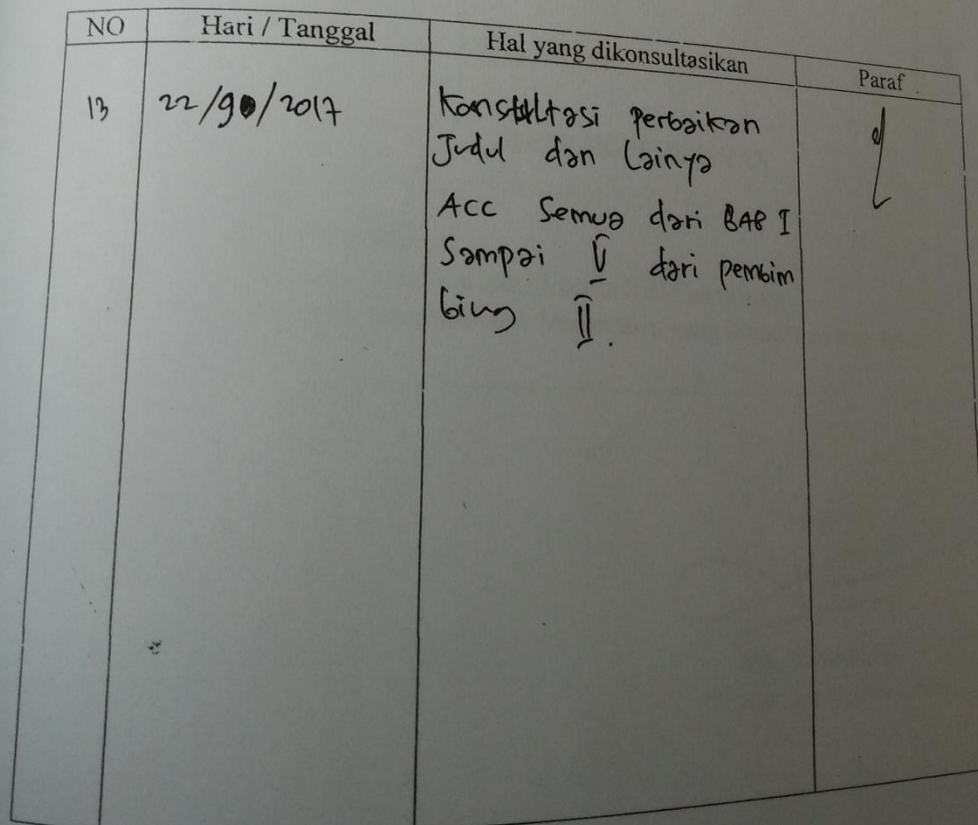 NO Hari / Tanggal Hal yang dikonsultasikan Paraf
13 22/9/2017 Konsultasi perbaikan
Judul dan Lainya
ACC Semua dari BAB I
Sampai V dari pembim
bing II.